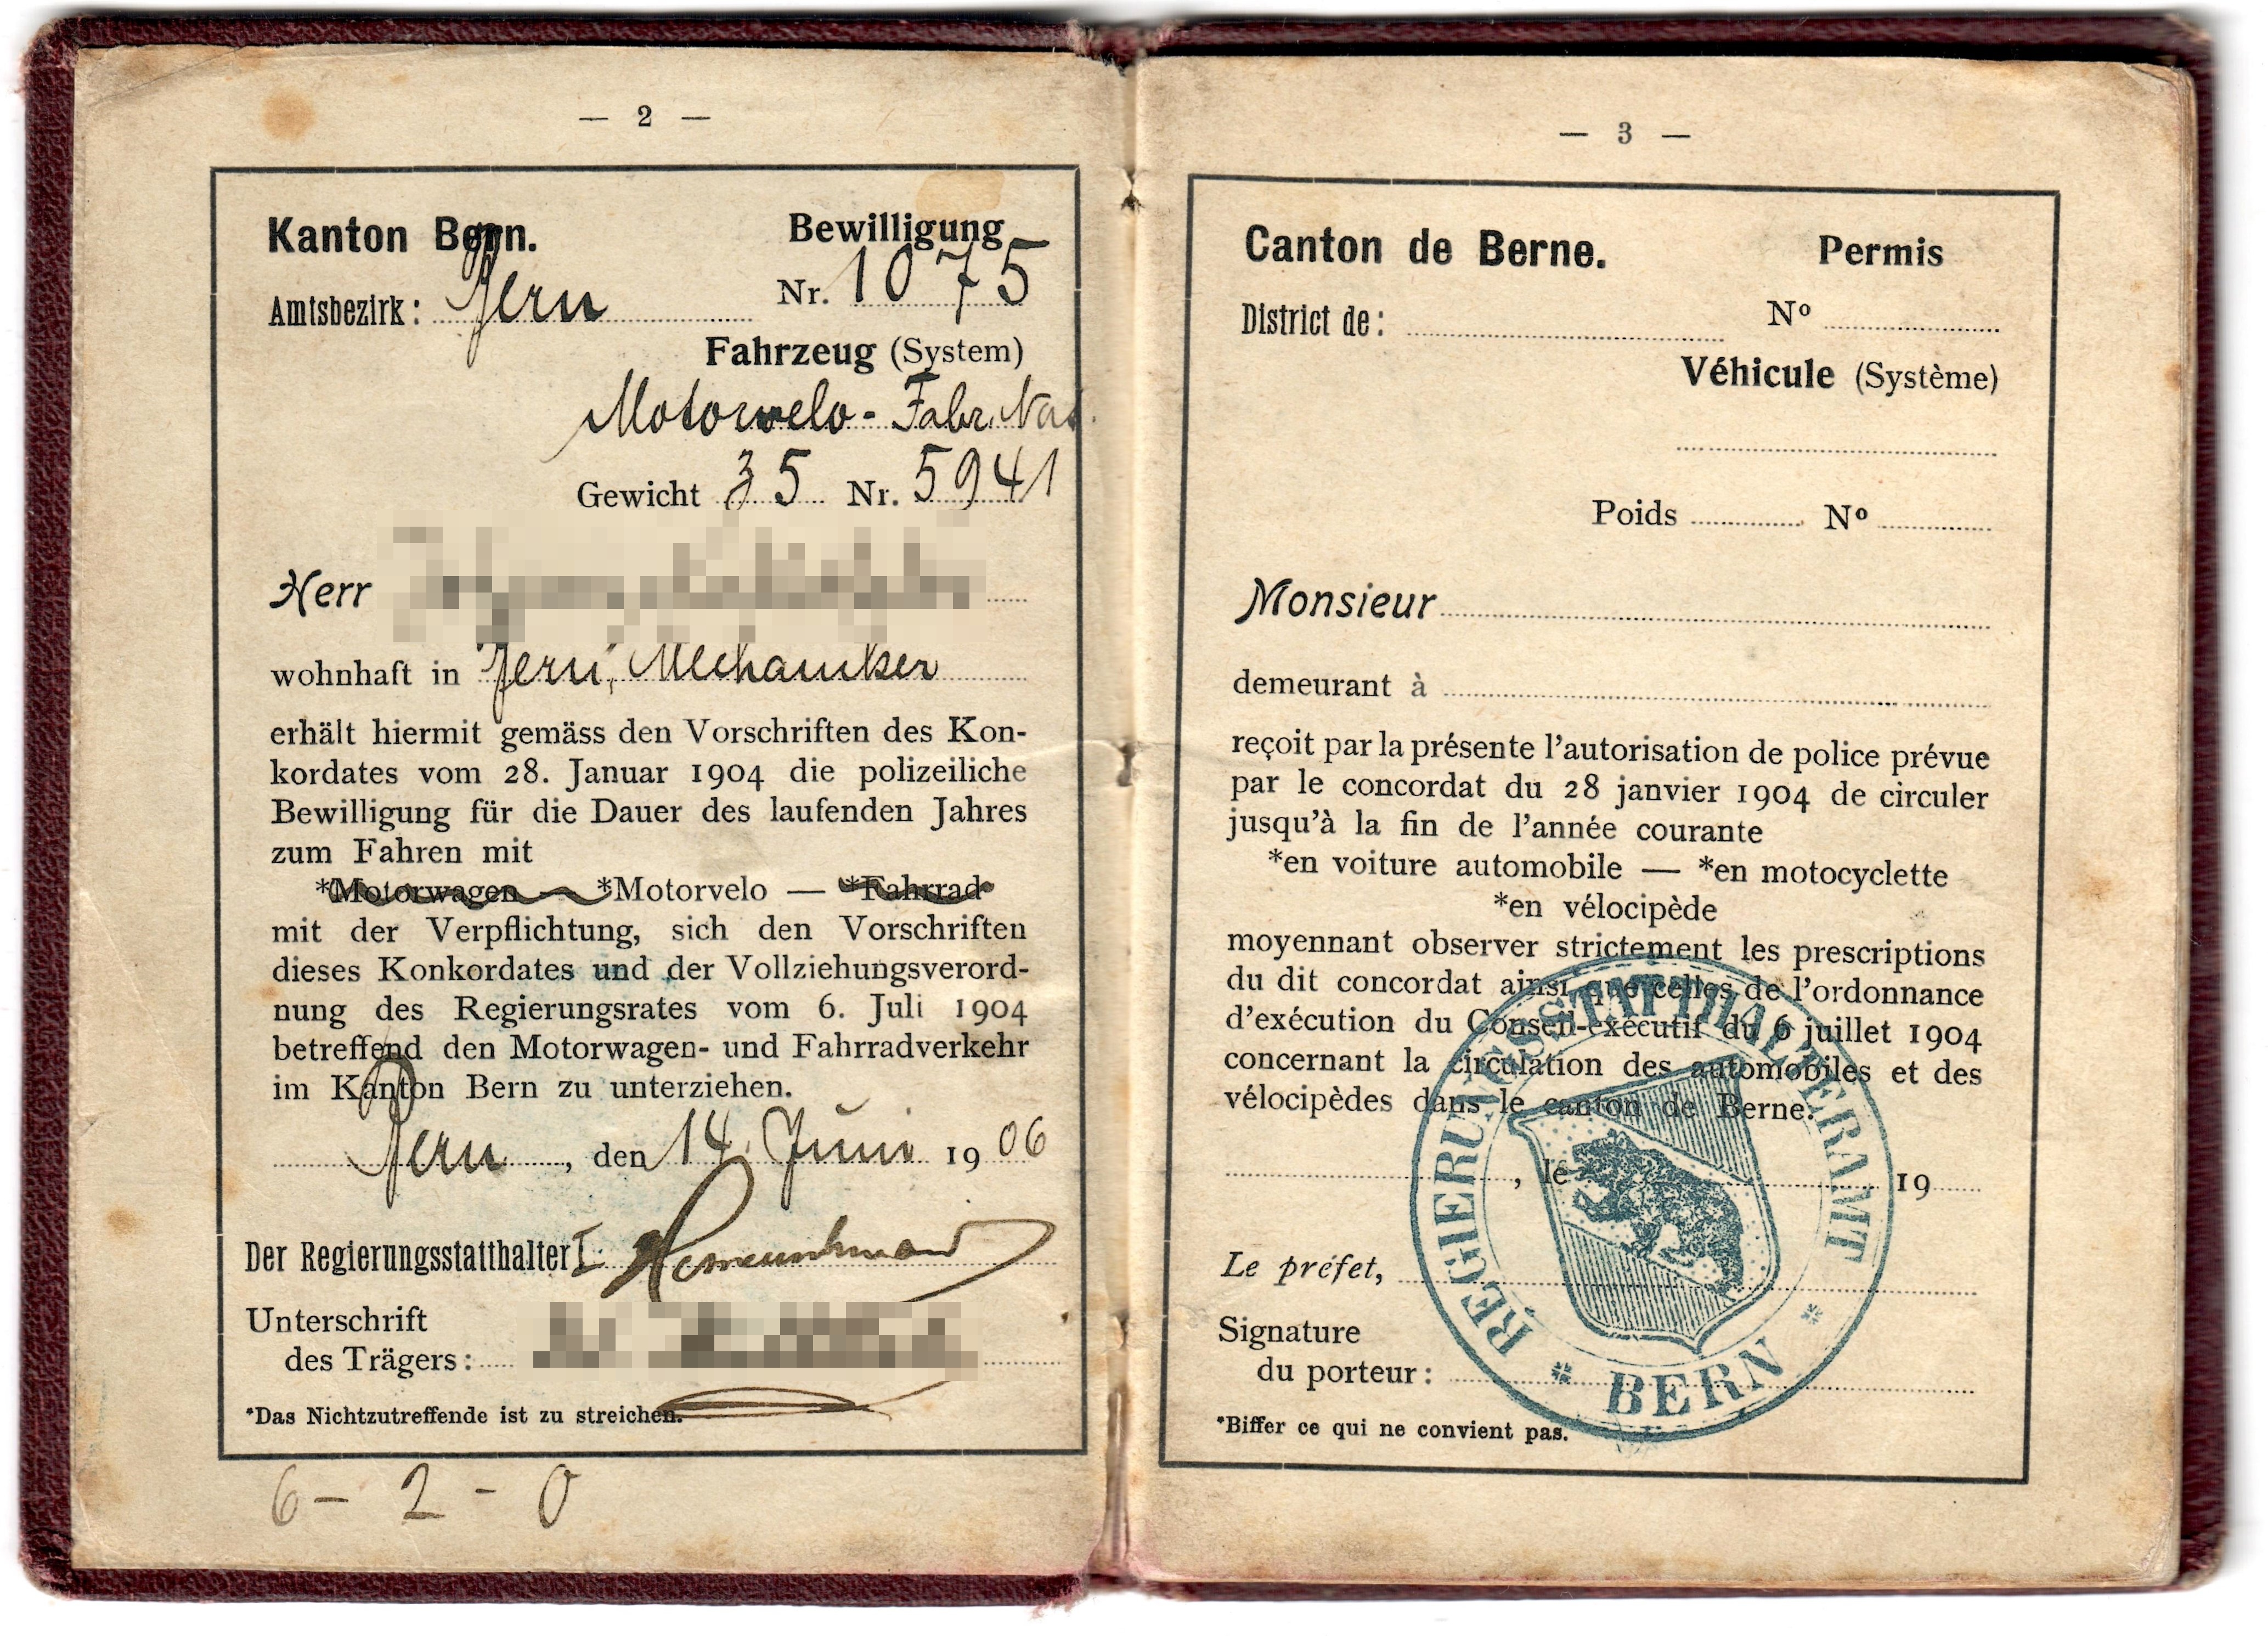 — 2 —
Kanton Bern. Bewilligung
Amtsbezirk: Bern Nr. 1075
Fahrzeug (System)
Motorvelo - Fabr.
Gewicht 35 Nr. 5941
Herr
wohnhaft in Bern, Mechaniker
erhält hiermit gemäss den Vorschriften des Kon-
kordates vom 28. Januar 1904 die polizeiliche
Bewilligung für die Dauer des laufenden Jahres
zum Fahren mit
*Motorwagen — *Motorvelo — *Fahrrad
mit der Verpflichtung, sich den Vorschriften
dieses Konkordates und der Vollziehungsverord-
nung des Regierungsrates vom 6. Juli 1904
betreffend den Motorwagen- und Fahrradverkehr
im Kanton Bern zu unterziehen.
Bern, den 14. Juni 1906
Der Regierungsstatthalter I:
Unterschrift
des Trägers:
*Das Nichtzutreffende ist zu streichen.
6 - 2 - 0
— 3 —
Canton de Berne. Permis
District de: Nº
Véhicule (Système)
Poids Nº
Monsieur
demeurant à
reçoit par la présente l'autorisation de police prévue
par le concordat du 28 janvier 1904 de circuler
jusqu'à la fin de l'année courante
*en voiture automobile — *en motocyclette
*en vélocipède
moyennant observer strictement les prescriptions
du dit concordat ainsi que celles de l'ordonnance
d'exécution du Conseil-exécutif du 6 juillet 1904
concernant la circulation des automobiles et des
vélocipèdes dans le canton de Berne.
, le 19
Le préfet,
Signature
du porteur:
*Biffer ce qui ne convient pas.
REGIERUNGSSTATTHALTERAMT
* BERN *